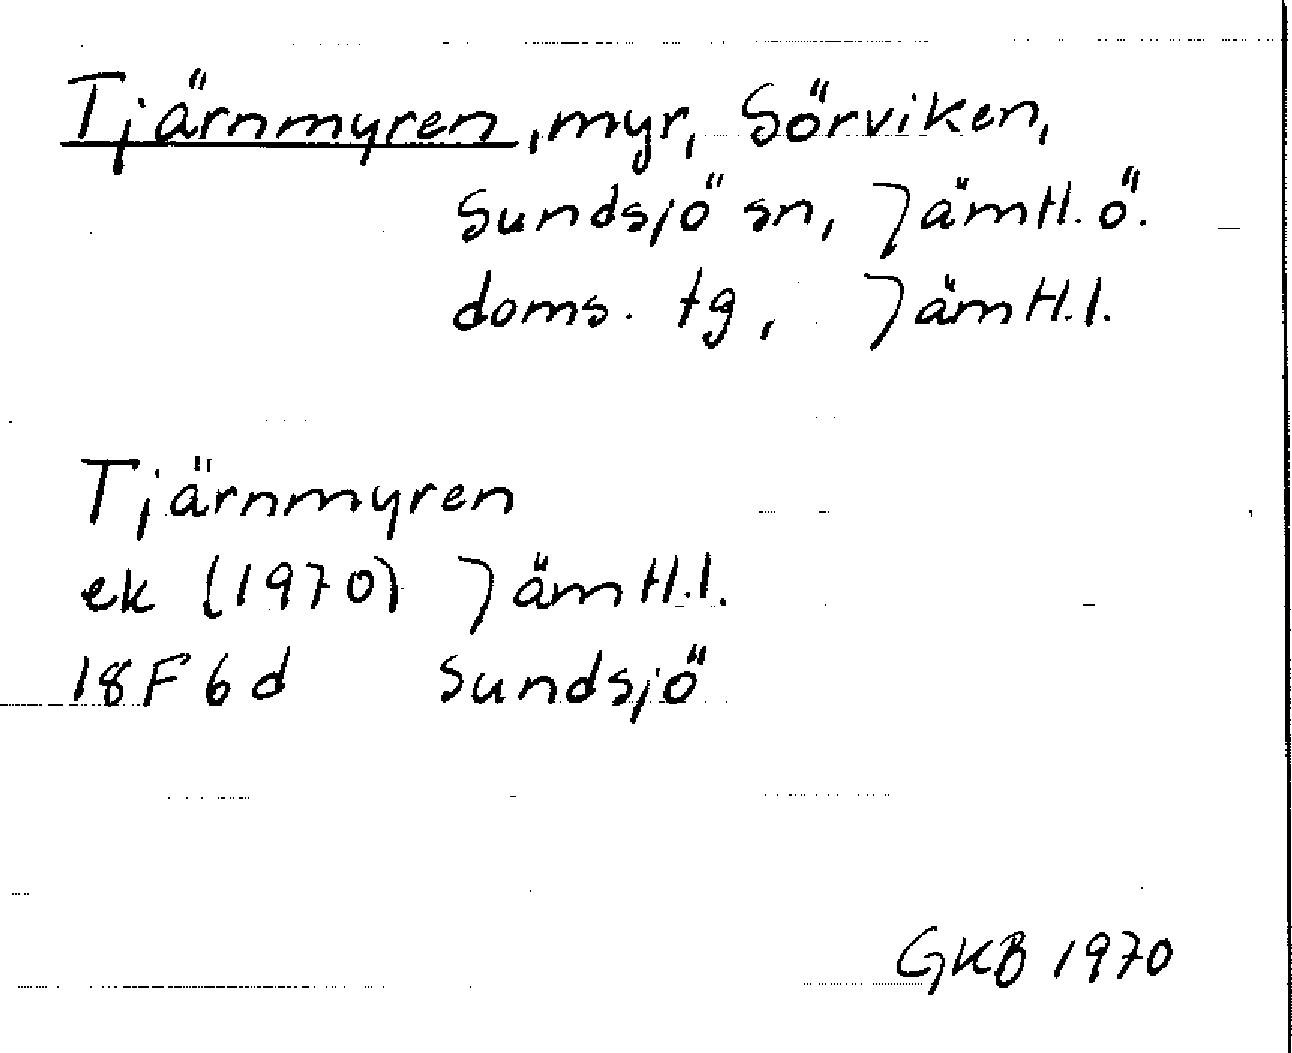 Tjärnmyren, myr, Sörviken,
Sundsjö sn, Jämtl. ö.
doms. tg, Jämtl. l.
Tjärnmyren
ek (1970) Jämtl. l.
18F 6d Sundsjö
GKB 1970